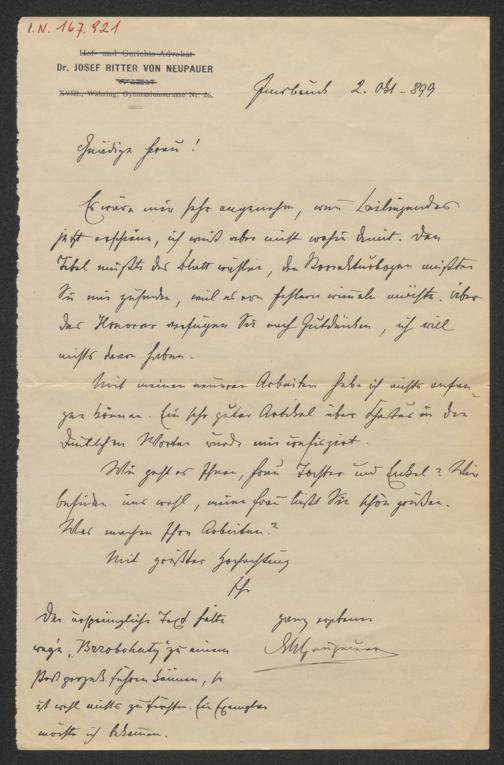 I.N. 167.921
Hof- und Gerichts-Advokat
Dr. JOSEF RITTER VON NEUPAUER
WIEN
XVIII., Währing, Gymnasiumstrasse Nr. 26.
Innsbruck 2. Okt - 899
Gnädige Frau!
Es wäre mir sehr angenehm, wenn Beiliegendes
jetzt erschiene, ich weiß aber nicht wohin damit. Den
Titel müßte das Blatt wählen, den Korrekturbogen müßten
Sie mir zusenden, weil es von Fehlern wimmeln möchte. Über
das Honorar verfügen Sie nach Gutdünken, ich will
nichts davon haben.
Mit meinen neueren Arbeiten habe ich nichts anfan-
gen können. Ein sehr guter Artikel über in den
Deutschen Worten wurde mir konfisziert.
Wie geht es Ihnen, Frau Tochter und Enkel? Wir
befinden uns wohl, meine Frau läßt Sie schön grüßen.
Was machen Ihre Arbeiten?
Mit größter Hochachtung
Ihr
ganz ergebener
Neupauer
Der ursprüngliche Text hätte
wegen "Brzobohaty" zu einem
Preßprozeß führen können, so
ist wohl nichts zu fürchten. Ein Exemplar
möchte ich bekommen.